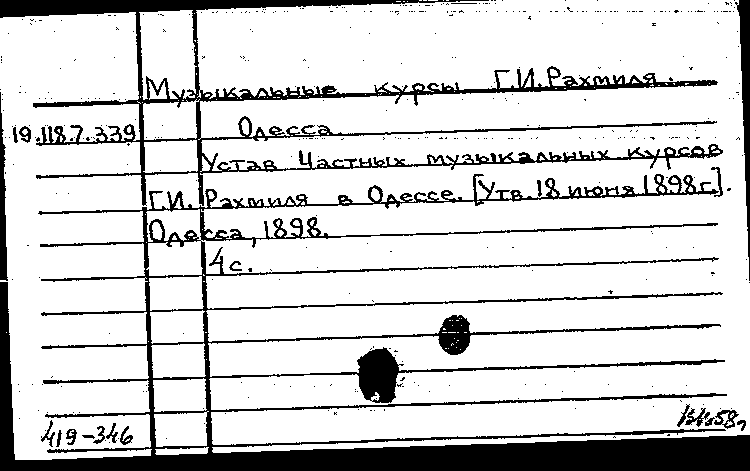 Музыкальные курсы Г.И. Рахмиля.
19.118.7.339 Одесса.
Устав Частных музыкальных курсов
Г.И. Рахмиля в Одессе. [Утв. 18 июня 1898 г.].
Одесса, 1898.
4 с.
419-346